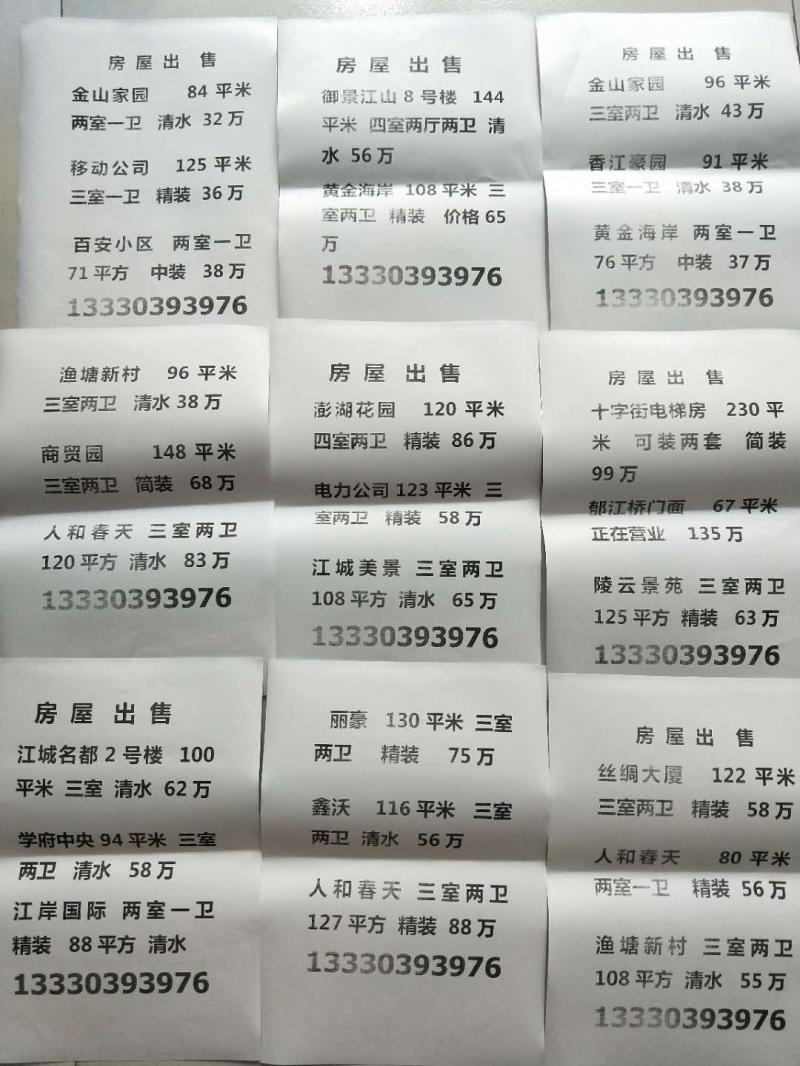 房屋出售
金山家园 84平米
两室一卫 清水 32万
移动公司 125平米
三室一卫 精装 36万
百安小区 两室一卫
71平方 中装 38万
13330393976
房屋出售
御景江山8号楼 144
平米 四室两厅两卫 清
水 56万
黄金海岸 108平米 三
室两卫 精装 价格65
万
13330393976
房屋出售
金山家园 96平米
三室两卫 清水 43万
香江豪园 91平米
三室一卫 清水 38万
黄金海岸 两室一卫
76平方 中装 37万
13330393976
渔塘新村 96平米
三室两卫 清水38万
商贸园 148平米
三室两卫 简装 68万
人和春天 三室两卫
120平方 清水 83万
13330393976
房屋出售
澎湖花园 120平米
四室两卫 精装 86万
电力公司 123平米 三
室两卫 精装 58万
江城美景 三室两卫
108平方 清水 65万
13330393976
房屋出售
十字街电梯房 230平
米 可装两套 简装
99万
郁江桥门面 67平米
正在营业 135万
陵云景苑 三室两卫
125平方 精装 63万
13330393976
房屋出售
江城名都2号楼 100
平米 三室 清水 62万
学府中央94平米 三室
两卫 清水 58万
江岸国际 两室一卫
精装 88平方 清水
13330393976
丽豪 130平米 三室
两卫 精装 75万
鑫沃 116平米 三室
两卫 清水 56万
人和春天 三室两卫
127平方 精装 88万
13330393976
房屋出售
丝绸大厦 122平米
三室两卫 精装 58万
人和春天 80平米
两室一卫 精装 56万
渔塘新村 三室两卫
108平方 清水 55万
13330393976